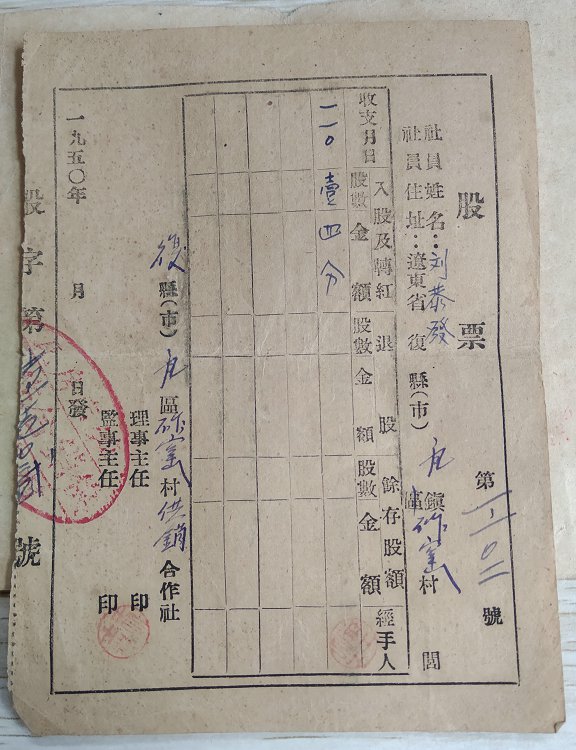 股票
第一一〇二號
社員姓名：刘恭發
社員住址：遼東省復縣(市)九鎮區砟窰村閭
收支月日
入股及轉紅
股數
金額
退股
股數
金額
餘存股額
股數
金額
經手人
二〇
壹
四分
復縣(市)九區砟窰村供銷合作社
理事主任
印
監事主任
印
一九五〇年 月 日發
股字第 號